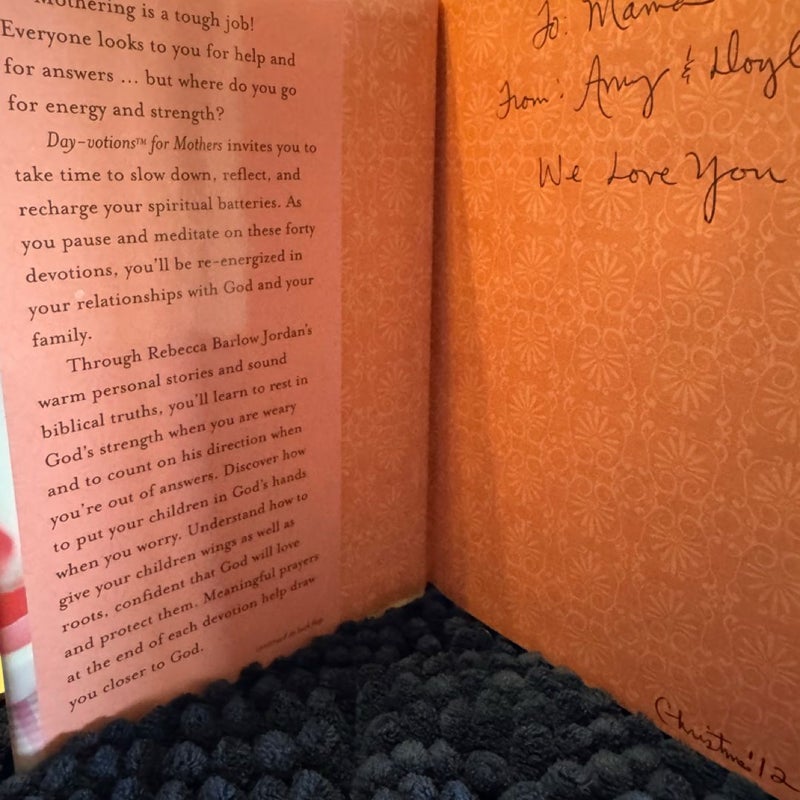 Mothering is a tough job!
Everyone looks to you for help and
for answers ... but where do you go
for energy and strength?
Day-votions™ for Mothers invites you to
take time to slow down, reflect, and
recharge your spiritual batteries. As
you pause and meditate on these forty
devotions, you'll be re-energized in
your relationships with God and your
family.
Through Rebecca Barlow Jordan's
warm personal stories and sound
biblical truths, you'll learn to rest in
God's strength when you are weary
and to count on his direction when
you're out of answers. Discover how
to put your children in God's hands
when you worry. Understand how to
give your children wings as well as
roots, confident that God will love
and protect them. Meaningful prayers
at the end of each devotion help draw
you closer to God.
continued on back flap
To: Mama
From: Amy &
We Love You
Christmas '12